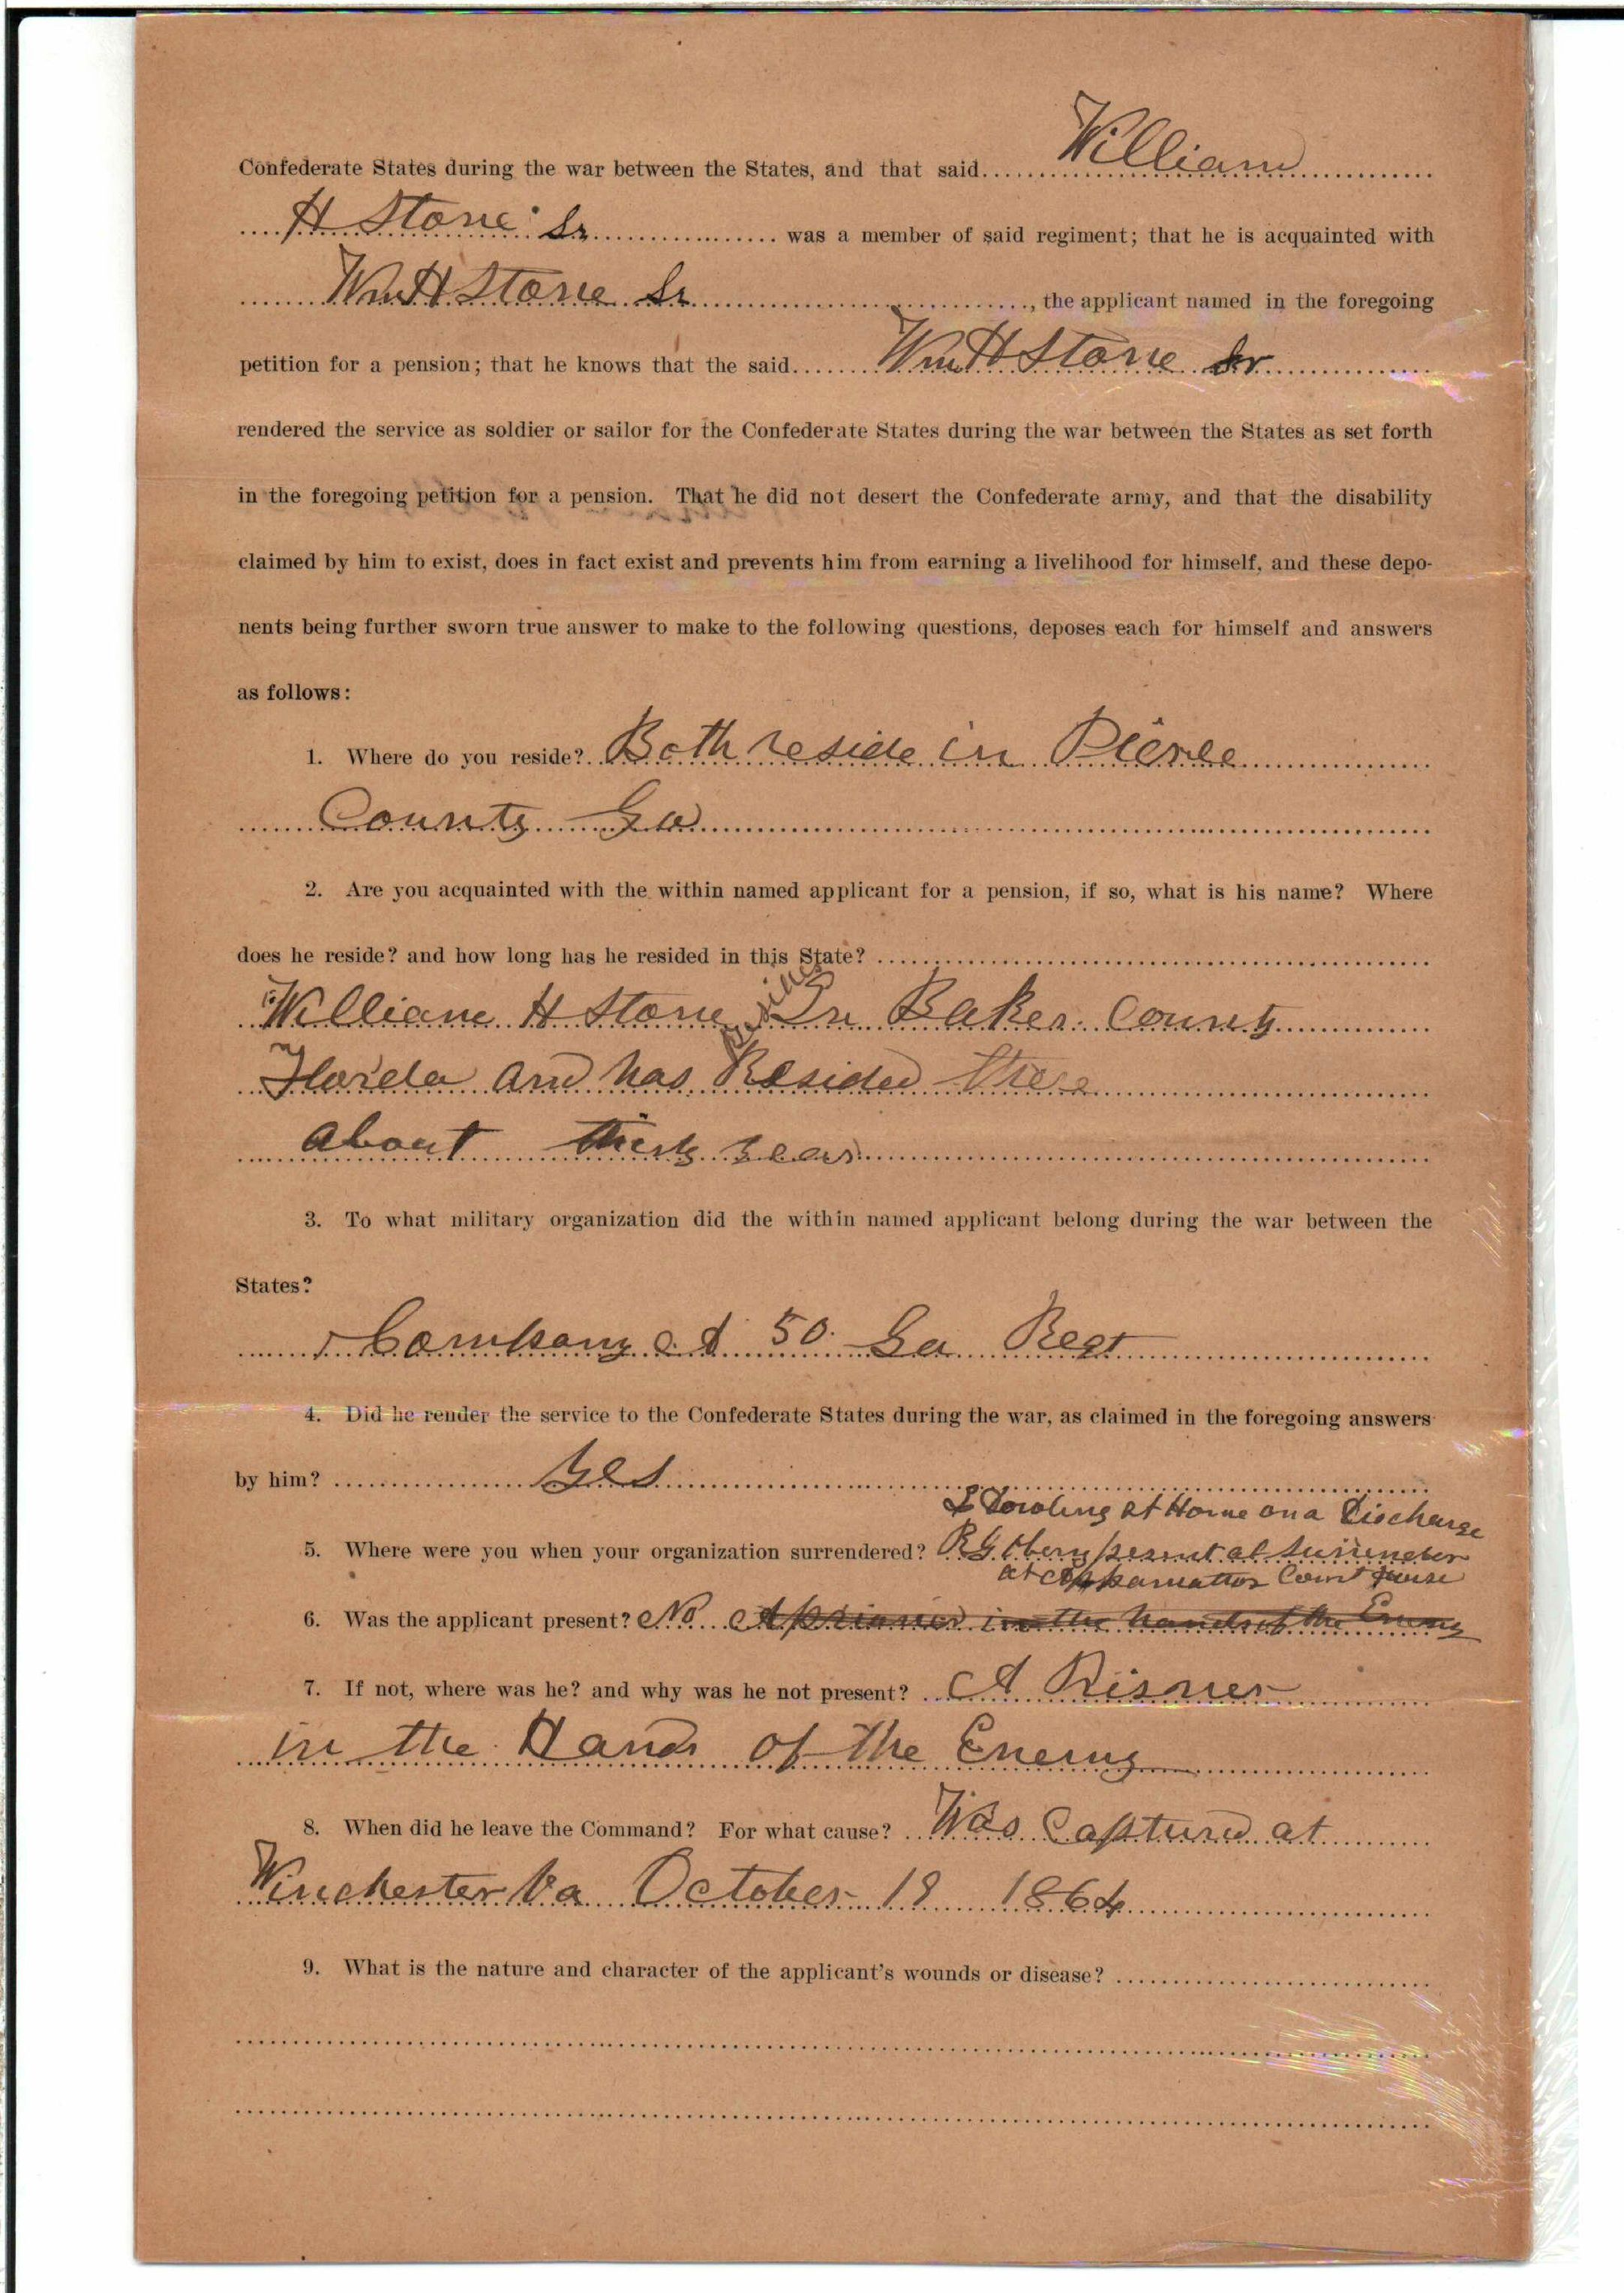 Confederate States during the war between the States, and that said William
H Stone Sr was a member of said regiment; that he is acquainted with
Wm H Stone Sr, the applicant named in the foregoing
petition for a pension; that he knows that the said Wm H Stone Sr
rendered the service as soldier or sailor for the Confederate States during the war between the States as set forth
in the foregoing petition for a pension. That he did not desert the Confederate army, and that the disability
claimed by him to exist, does in fact exist and prevents him from earning a livelihood for himself, and these depo-
nents being further sworn true answer to make to the following questions, deposes each for himself and answers
as follows:
1. Where do you reside? Both reside in Pierce
County Ga
2. Are you acquainted with the within named applicant for a pension, if so, what is his name? Where
does he reside? and how long has he resided in this State?
William H Stone resides In Baker County
Florida and has Resided there
about thirty years
3. To what military organization did the within named applicant belong during the war between the
States?
Company 50 Ga Regt
4. Did he render the service to the Confederate States during the war, as claimed in the foregoing answers
by him? Yes
Dowling at Home on a Discharge
5. Where were you when your organization surrendered? R G present at Surrender
at Appamattox Court House
6. Was the applicant present? No A prisoner in the hands of the Enemy
7. If not, where was he? and why was he not present? A Risner
in the Hands of the Enemy
8. When did he leave the Command? For what cause? Was Captured at
Winchester Va October 19 1864
9. What is the nature and character of the applicant's wounds or disease?